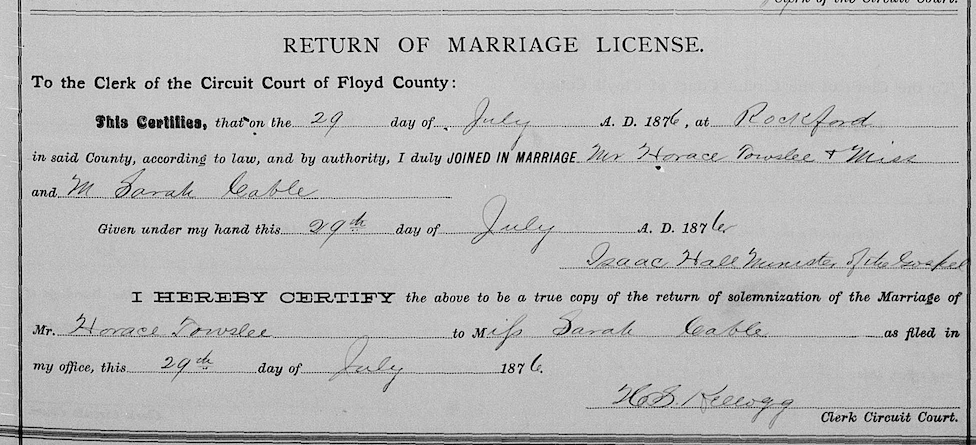 Clerk of the Circuit Court.
RETURN OF MARRIAGE LICENSE.
To the Clerk of the Circuit Court of Floyd County:
This Certifies, that on the 29 day of July A. D. 1876, at Rockford
in said County, according to law, and by authority, I duly JOINED IN MARRIAGE Mr Horace Towslee & Miss
and M Sarah Cable
Given under my hand this 29th day of July A. D. 1876
Isaac Hall Minister of the Gospel
I HEREBY CERTIFY the above to be a true copy of the return of solemnization of the Marriage of
Mr. Horace Towslee to Miss Sarah Cable as filed in
my office, this 29th day of July 1876.
H.S. Kellogg
Clerk Circuit Court.